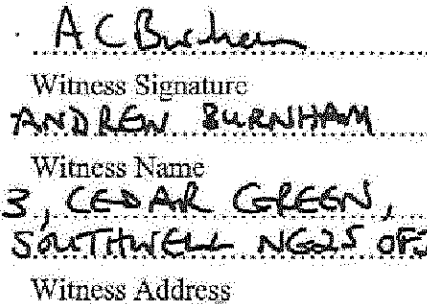 A C Burnham
Witness Signature
ANDREW BURNHAM
Witness Name
3, CEDAR GREEN,
SOUTHWELL NG25
Witness Address